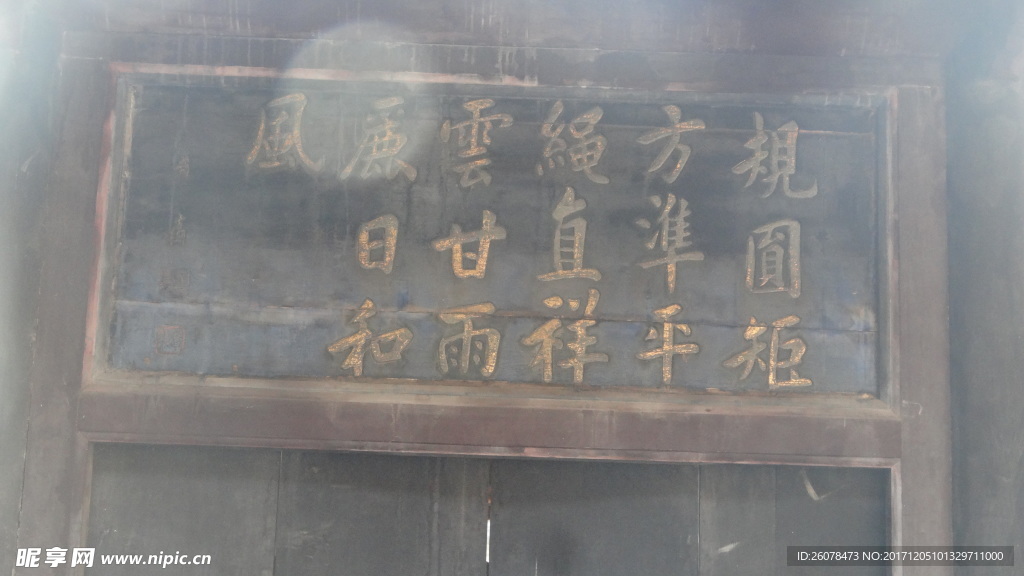 規圓矩
方準平
繩直祥
雲甘雨
麗日和
風
昵享网 www.nipic.cn
ID:26078473 NO:20171205101329711000